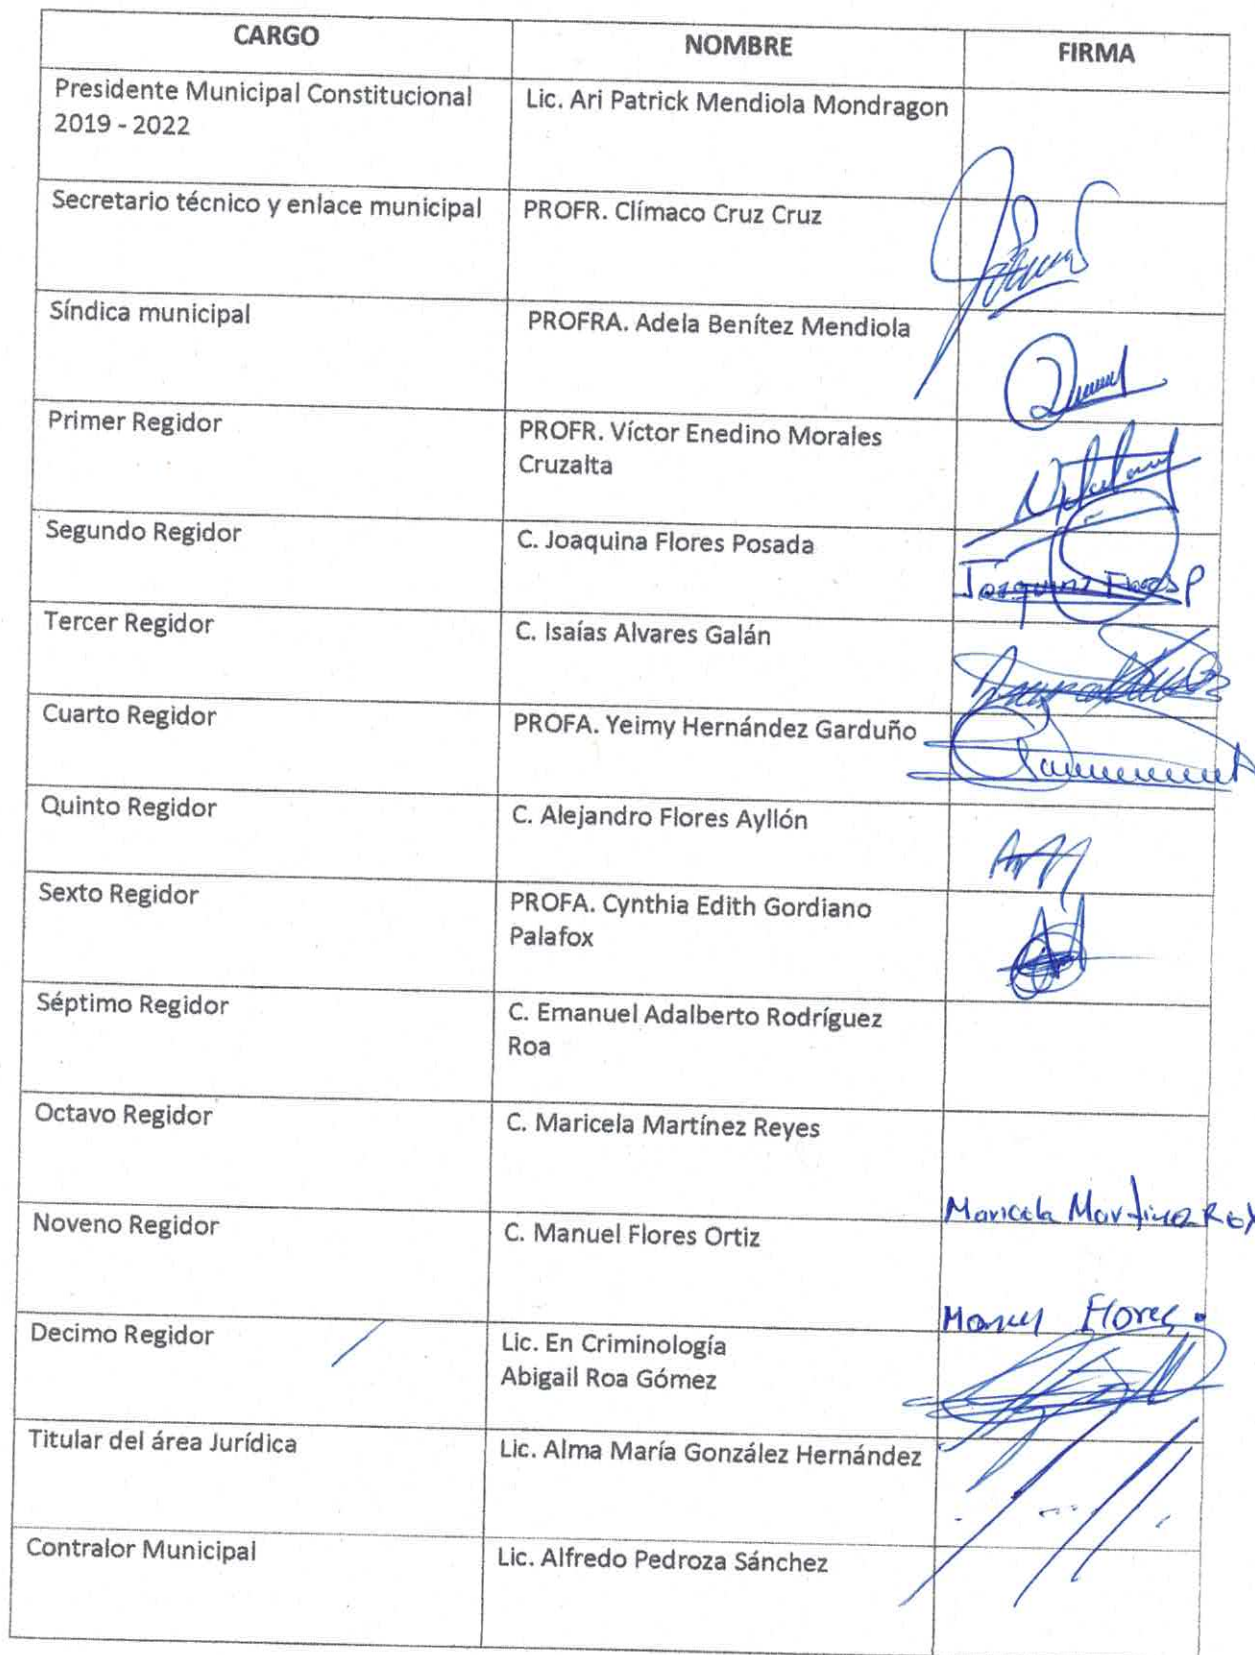 CARGO NOMBRE FIRMA
Presidente Municipal Constitucional Lic. Ari Patrick Mendiola Mondragon
2019 - 2022
Secretario técnico y enlace municipal PROFR. Clímaco Cruz Cruz
Síndica municipal PROFRA. Adela Benítez Mendiola
Primer Regidor PROFR. Víctor Enedino Morales
Cruzalta
Segundo Regidor C. Joaquina Flores Posada
Tercer Regidor C. Isaías Alvares Galán
Cuarto Regidor PROFA. Yeimy Hernández Garduño
Quinto Regidor C. Alejandro Flores Ayllón
Sexto Regidor PROFA. Cynthia Edith Gordiano
Palafox
Séptimo Regidor C. Emanuel Adalberto Rodríguez
Roa
Octavo Regidor C. Maricela Martínez Reyes
Maricela Martinez
Noveno Regidor C. Manuel Flores Ortiz
Flores
Decimo Regidor Lic. En Criminología
Abigail Roa Gómez
Titular del área Jurídica Lic. Alma María González Hernández
Contralor Municipal Lic. Alfredo Pedroza Sánchez